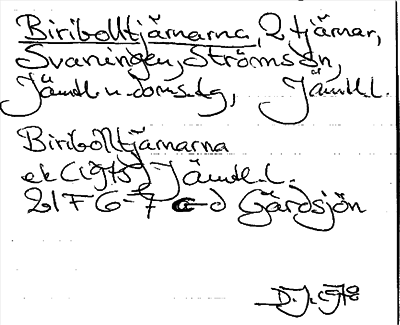 Biribolltjärnarna, 2 tjärnar,
Svaningen, Strömsön,
Jämtl. n. domsag, Jämtl.l.
Biribolltjärnarna
ek (1975) Jämtl.l.
21F 6-7 c-d Gärdsjön
D.J.